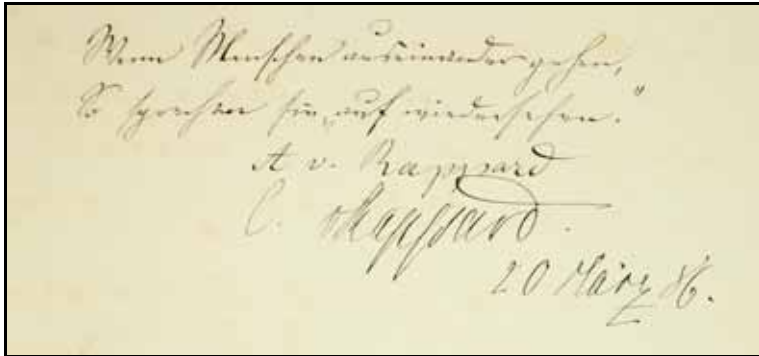 Wenn Menschen auseinandergehen,
So sprechen sie „auf wiedersehen."
A v. Rappard
C. v Rappard.
20 März 86.